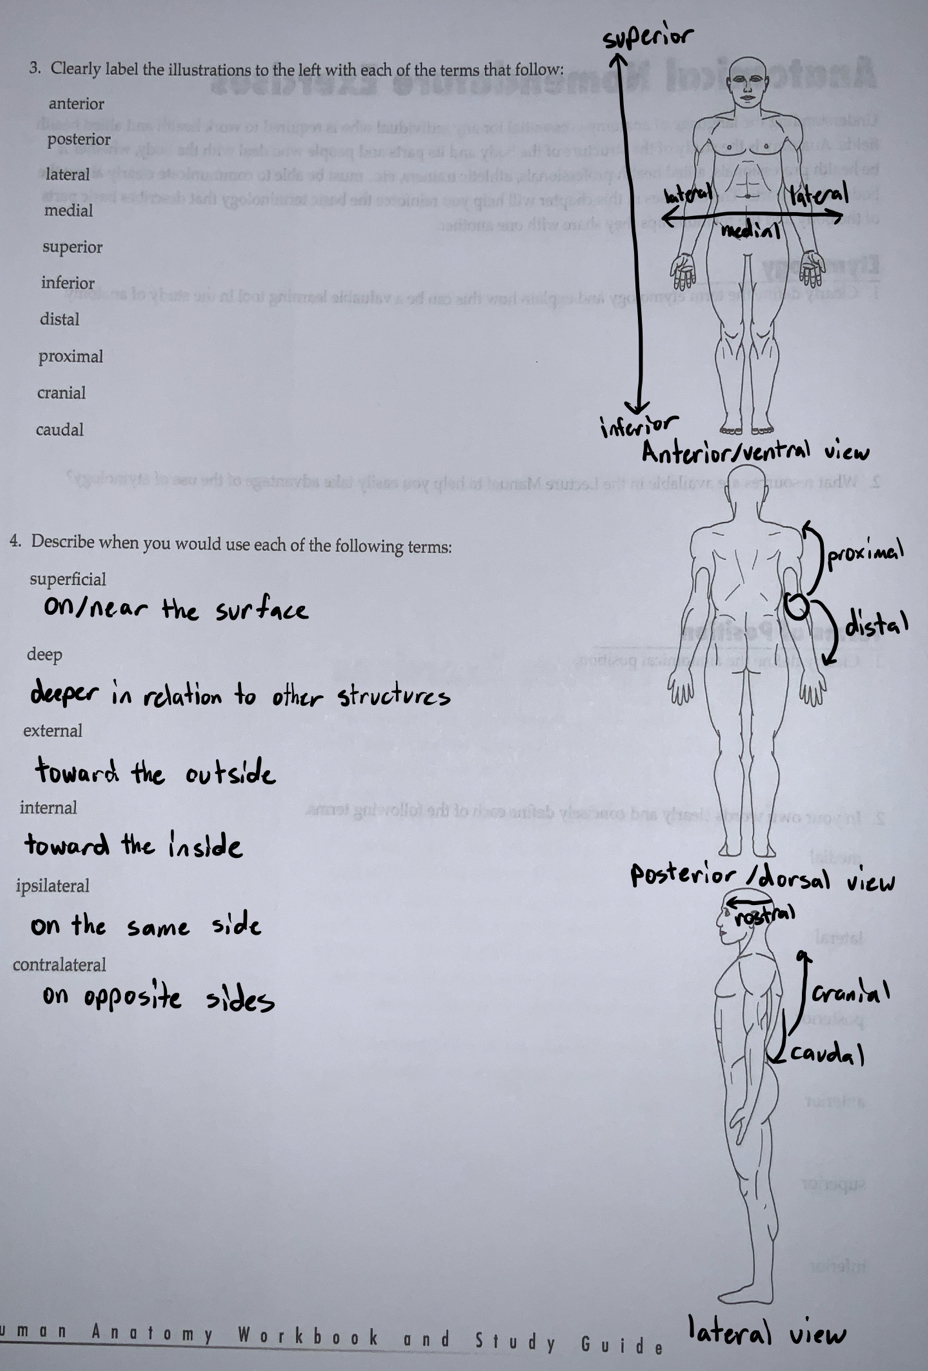 3. Clearly label the illustrations to the left with each of the terms that follow:
anterior
posterior
lateral
medial
superior
inferior
distal
proximal
cranial
caudal
4. Describe when you would use each of the following terms:
superficial
on/near the surface
deep
deeper in relation to other structures
external
toward the outside
internal
toward the inside
ipsilateral
on the same side
contralateral
on opposite sides
superior
lateral lateral
medial
inferior
Anterior/ventral view
proximal
distal
Posterior/dorsal view
rostral
cranial
caudal
lateral view
uman Anatomy Workbook and Study Guide